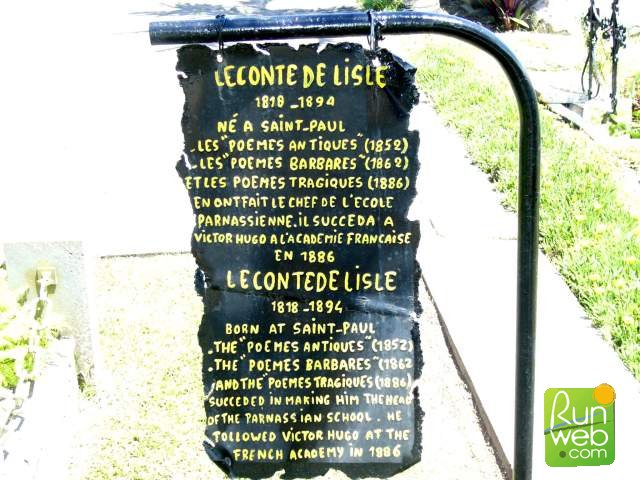 LECONTE DE LISLE
1818_1894
NÉ A SAINT-PAUL
.LES "POEMES ANTIQUES" (1852)
.LES "POEMES BARBARES" (1862)
ET LES POEMES TRAGIQUES (1886)
EN ONT FAIT LE CHEF DE L'ECOLE
PARNASSIENNE. IL SUCCEDA A
VICTOR HUGO A L'ACADEMIE FRANCAISE
EN 1886
LECONTE DE LISLE
1818_1894
BORN AT SAINT-PAUL
.THE "POEMES ANTIQUES" (1852)
.THE "POEMES BARBARES" (1862
AND THE "POEMES TRAGIQUES (1886)
SUCCEDED IN MAKING HIM THE HEAD
OF THE PARNASSIAN SCHOOL. HE
FOLLOWED VICTOR HUGO AT THE
FRENCH ACADEMY IN 1886
Run
web
.com